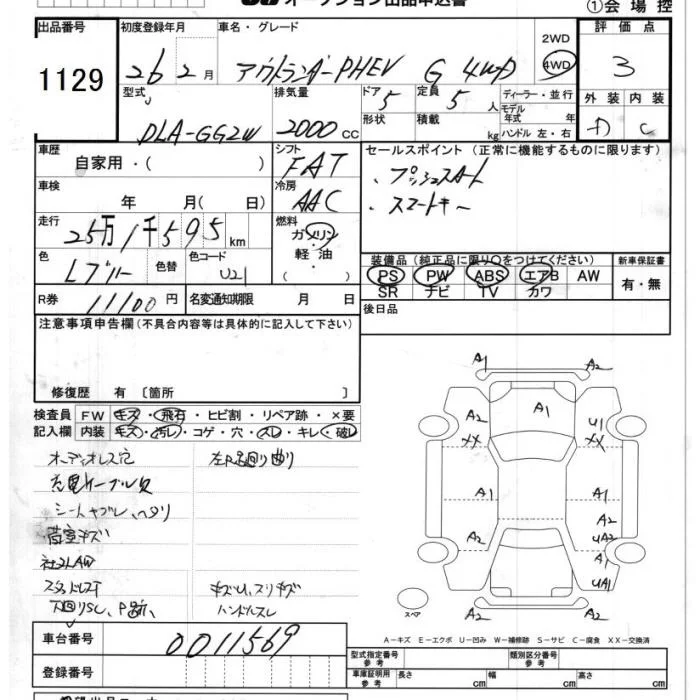 オークション出品申込書
①会場控
出品番号 初度登録年月 車名・グレード 2WD 4WD 評価点
1129 26 2月 アウトランダーPHEV G 4WD 3
型式 排気量 ドア 5 定員 5人 ディーラー・並行 外装 内装
DLA-GG2W 2000cc 形状 積載 kg モデル年式 年 D C
ハンドル 左・右
車歴 自家用・( ) シフト FAT セールスポイント (正常に機能するものに限ります)
車検 年 月( 日) 冷房 AAC ・プッシュスタート
・スマートキー
走行 25万1千595km 燃料 ガソリン・軽油・
色 Lブルー 色替 色コード U21
装備品 (純正品に限り〇をつけてください) 新車保証書
PS PW ABS エアB AW 有・無
SR ナビ TV カワ
R券 11100円 名変通知期限 月 日 後日品
注意事項申告欄 (不具合内容等は具体的に記入して下さい)
修復歴 有 〔箇所 〕
検査員 FW キズ・飛石・ヒビ割・リペア跡・×要
記入欄 内装 キズ・汚レ・コゲ・穴・スレ・キレ・破レ
オーディオレス穴 左R足回り曲り
充電ケーブル欠
シートヤブレ、ヘタリ
荷室キズ
社外AW
スタッドレス キズU、スリキズ
下回りSC、P跡、 ハンドルスレ
A1 A2
A2 A1 U1
XX XX
A1 A1
A2
UA2
A2 A1
UA1
A2
スペア
A-キズ E-エクボ U-凹み W-補修跡 S-サビ C-腐食 XX-交換済
車台番号 0011569
型式指定番号 参考 類別区分番号 参考
登録番号 車庫証明用 参考 長さ cm 幅 cm 高さ cm